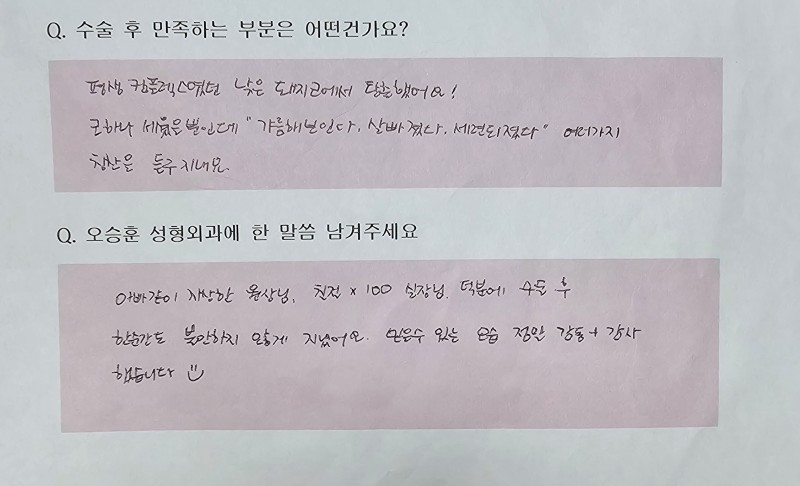 Q. 수술 후 만족하는 부분은 어떤건가요?
평생 컴플렉스였던 낮은 돼지코에서 탈출했어요!
코하나 세웠은뿐인데 "갸름해보인다. 살빠졌다. 세련되졌다" 여러가지
칭찬은 듣구지내요.
Q. 오승훈 성형외과에 한 말씀 남겨주세요
아빠같이 자상한 원장님, 친절 x 100 실장님. 덕분에 수술 후
한순간도 불안하지 않게 지냈어요. 믿을수 있는 모습 정말 감동 + 감사
했습니다